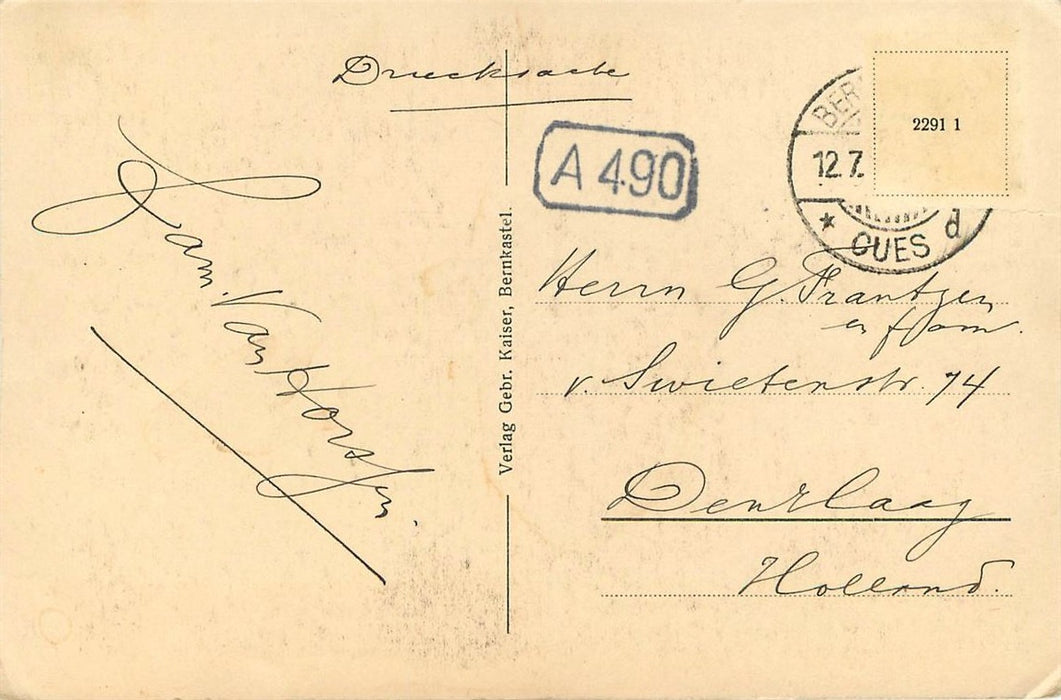 Drucksache
A 490
BER
12.7.
* CUES d
2291 1
Fam. Van Horssen.
Verlag Gebr. Kaiser, Bernkastel.
Herrn G. Frantzen
en fam.
v. Swietenstr. 74
Den Haag
Holland.